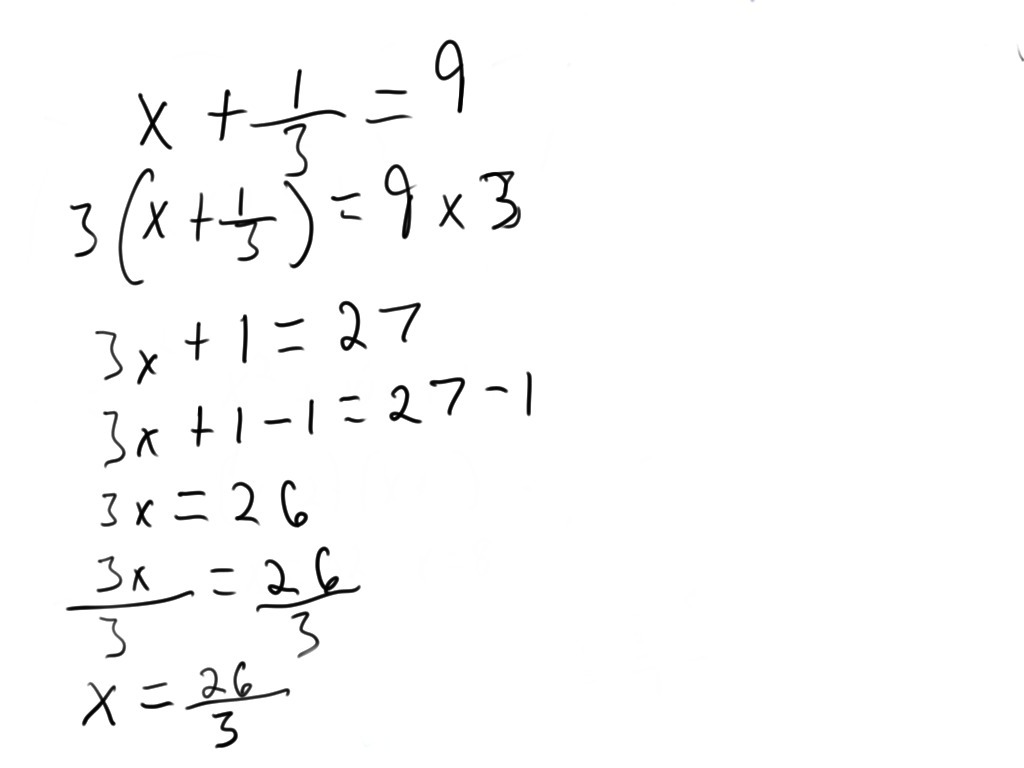 x + 1/3 = 9
3(x + 1/3) = 9 x 3
3x + 1 = 27
3x + 1 - 1 = 27 - 1
3x = 26
3x/3 = 26/3
x = 26/3